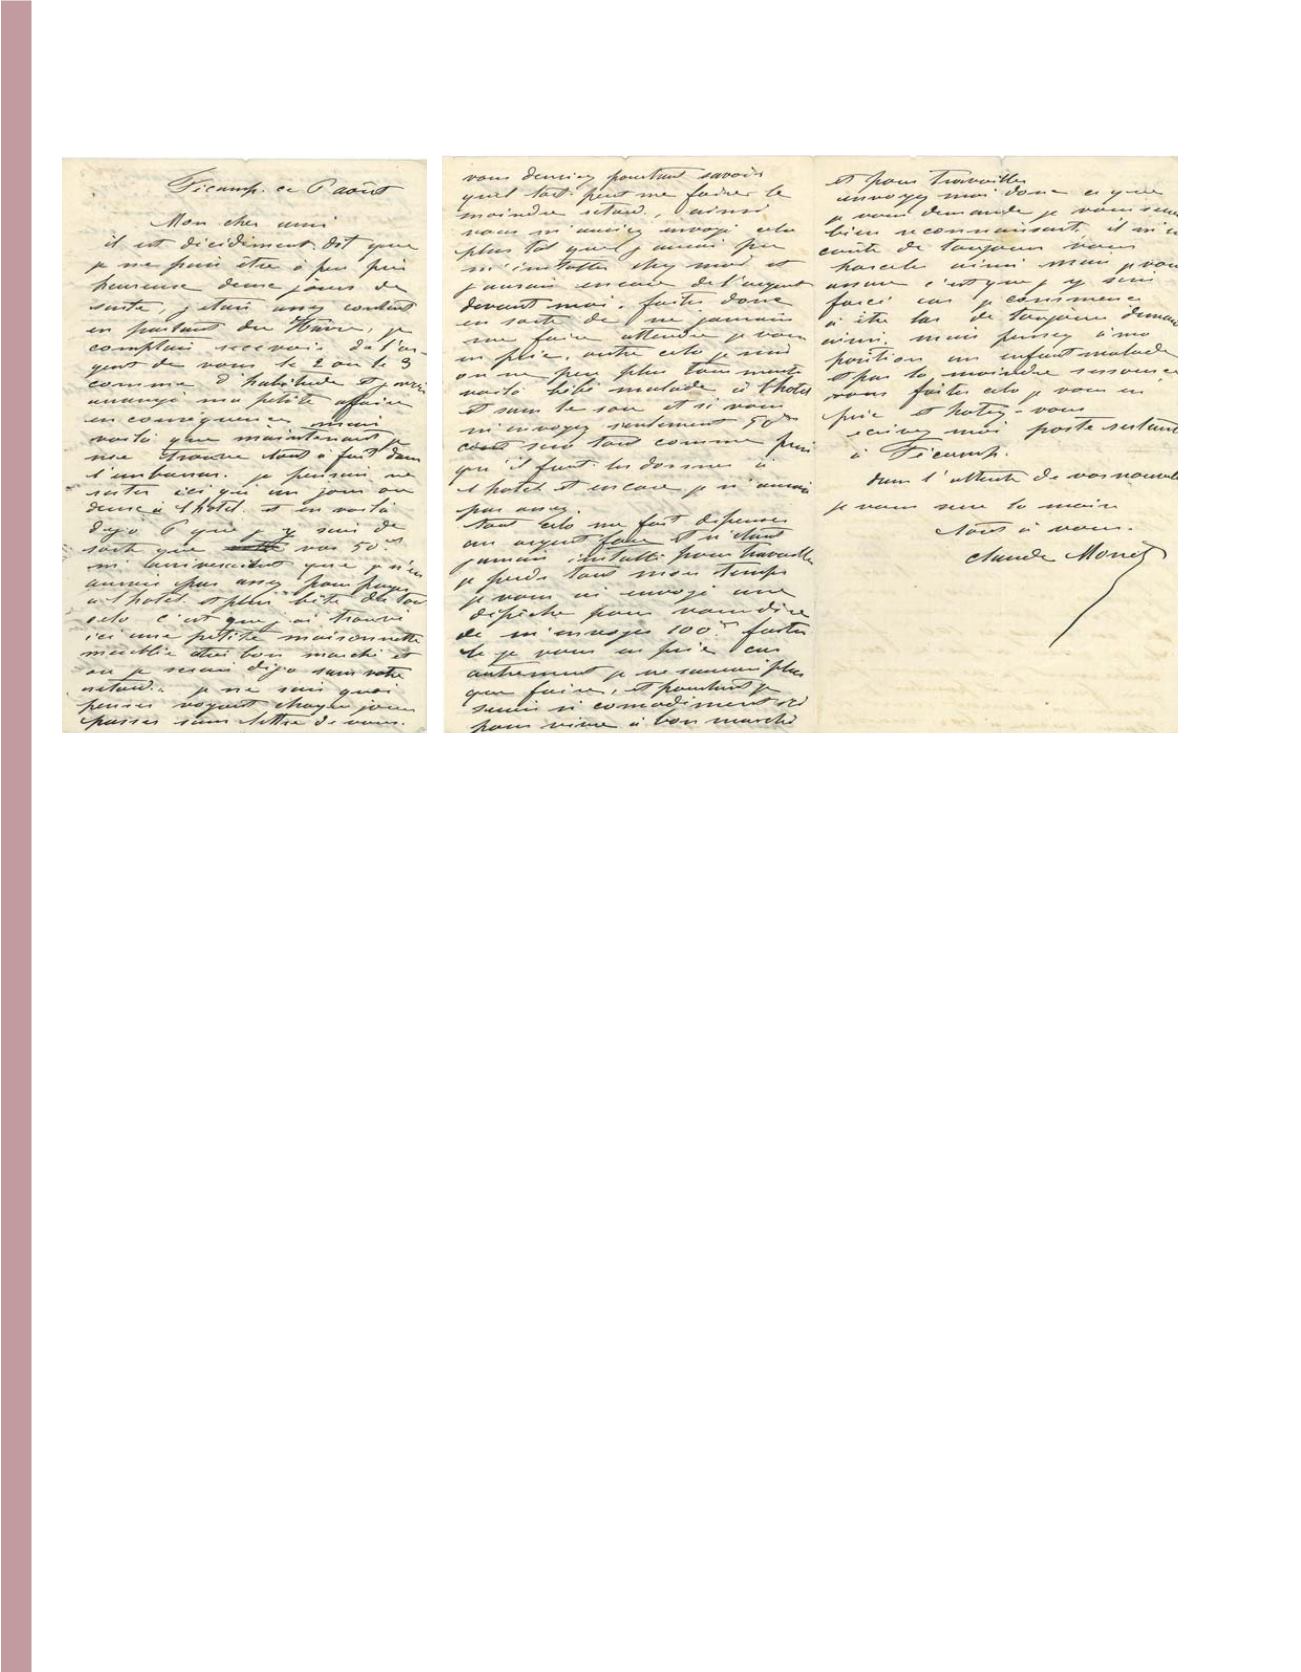 Fécamp. ce 6 août
Mon cher ami
il est décidément dit que
je ne puis être à peu près
heureuse deux jours de
suite, j'étais assez content
en partant du Havre, je
comptais recevoir de l'ar-
gent de vous le 2 ou le 3
comme d'habitude et j'avais
arrangé ma petite affaire
en conséquence mais
voilà que maintenant je
me trouve tout à fait dans
l'embarras. je pensais ne
rester ici qu'un jour ou
deux à l'hotel. et en voilà
déjà 6 que j'y suis de
sorte que vos 50 frs
m'arriveraient que je n'en
aurais pas assez pour payer
à l'hotel. et plus bête de tout
cela c'est que j'ai trouvé
ici une petite maisonnette
meublée bon marché et
où je serais déjà sans votre
retard. je ne sais quoi
penser voyant chaque jour
passer sans lettre de vous.
vous devriez pourtant savoir
quel tort peut me faire le
moindre retard, ainsi
vous m'auriez envoyé cela
plus tôt que j'aurais pu
m'installer chez moi et
j'aurais encore de l'argent
devant moi. faites donc
en sorte de ne jamais
me faire attendre je vous
en prie. outre cela je suis
on ne peu plus tourmenté
voilà bébé malade à l'hotel
et sans le sou et si vous
m'envoyez seulement 50 frs
sera tout comme puis
qu'il faut les donner à
l'hotel et encore je n'aurai
pas assez.
tout cela me fait dépenser
un argent fou et n'étant
jamais installé pour travailler
je perds tout mon temps
je vous ai envoyé une
dépêche pour vous dire
de m'envoyer 100 frs faites
le je vous en prie car
autrement je ne saurais plus
que faire, et pourtant je
serais si comodément ici
pour vivre à bon marché
et pour travailler
envoyez moi donc ce que
je vous demande je vous serai
bien reconnaissant. il m'en
coûte de toujours vous
harceler ainsi mais je vous
assure c'est que j'y suis
forcé car je commence
à être las de toujours demander
ainsi. mais pensez à ma
position un enfant malade
et pas la moindre ressource
vous faites cela je vous en
prie et hatez-vous
écrivez moi poste restante
à Fécamp.
dans l'attente de vos nouvelles
je vous serre la main
tout à vous.
Claude Monet